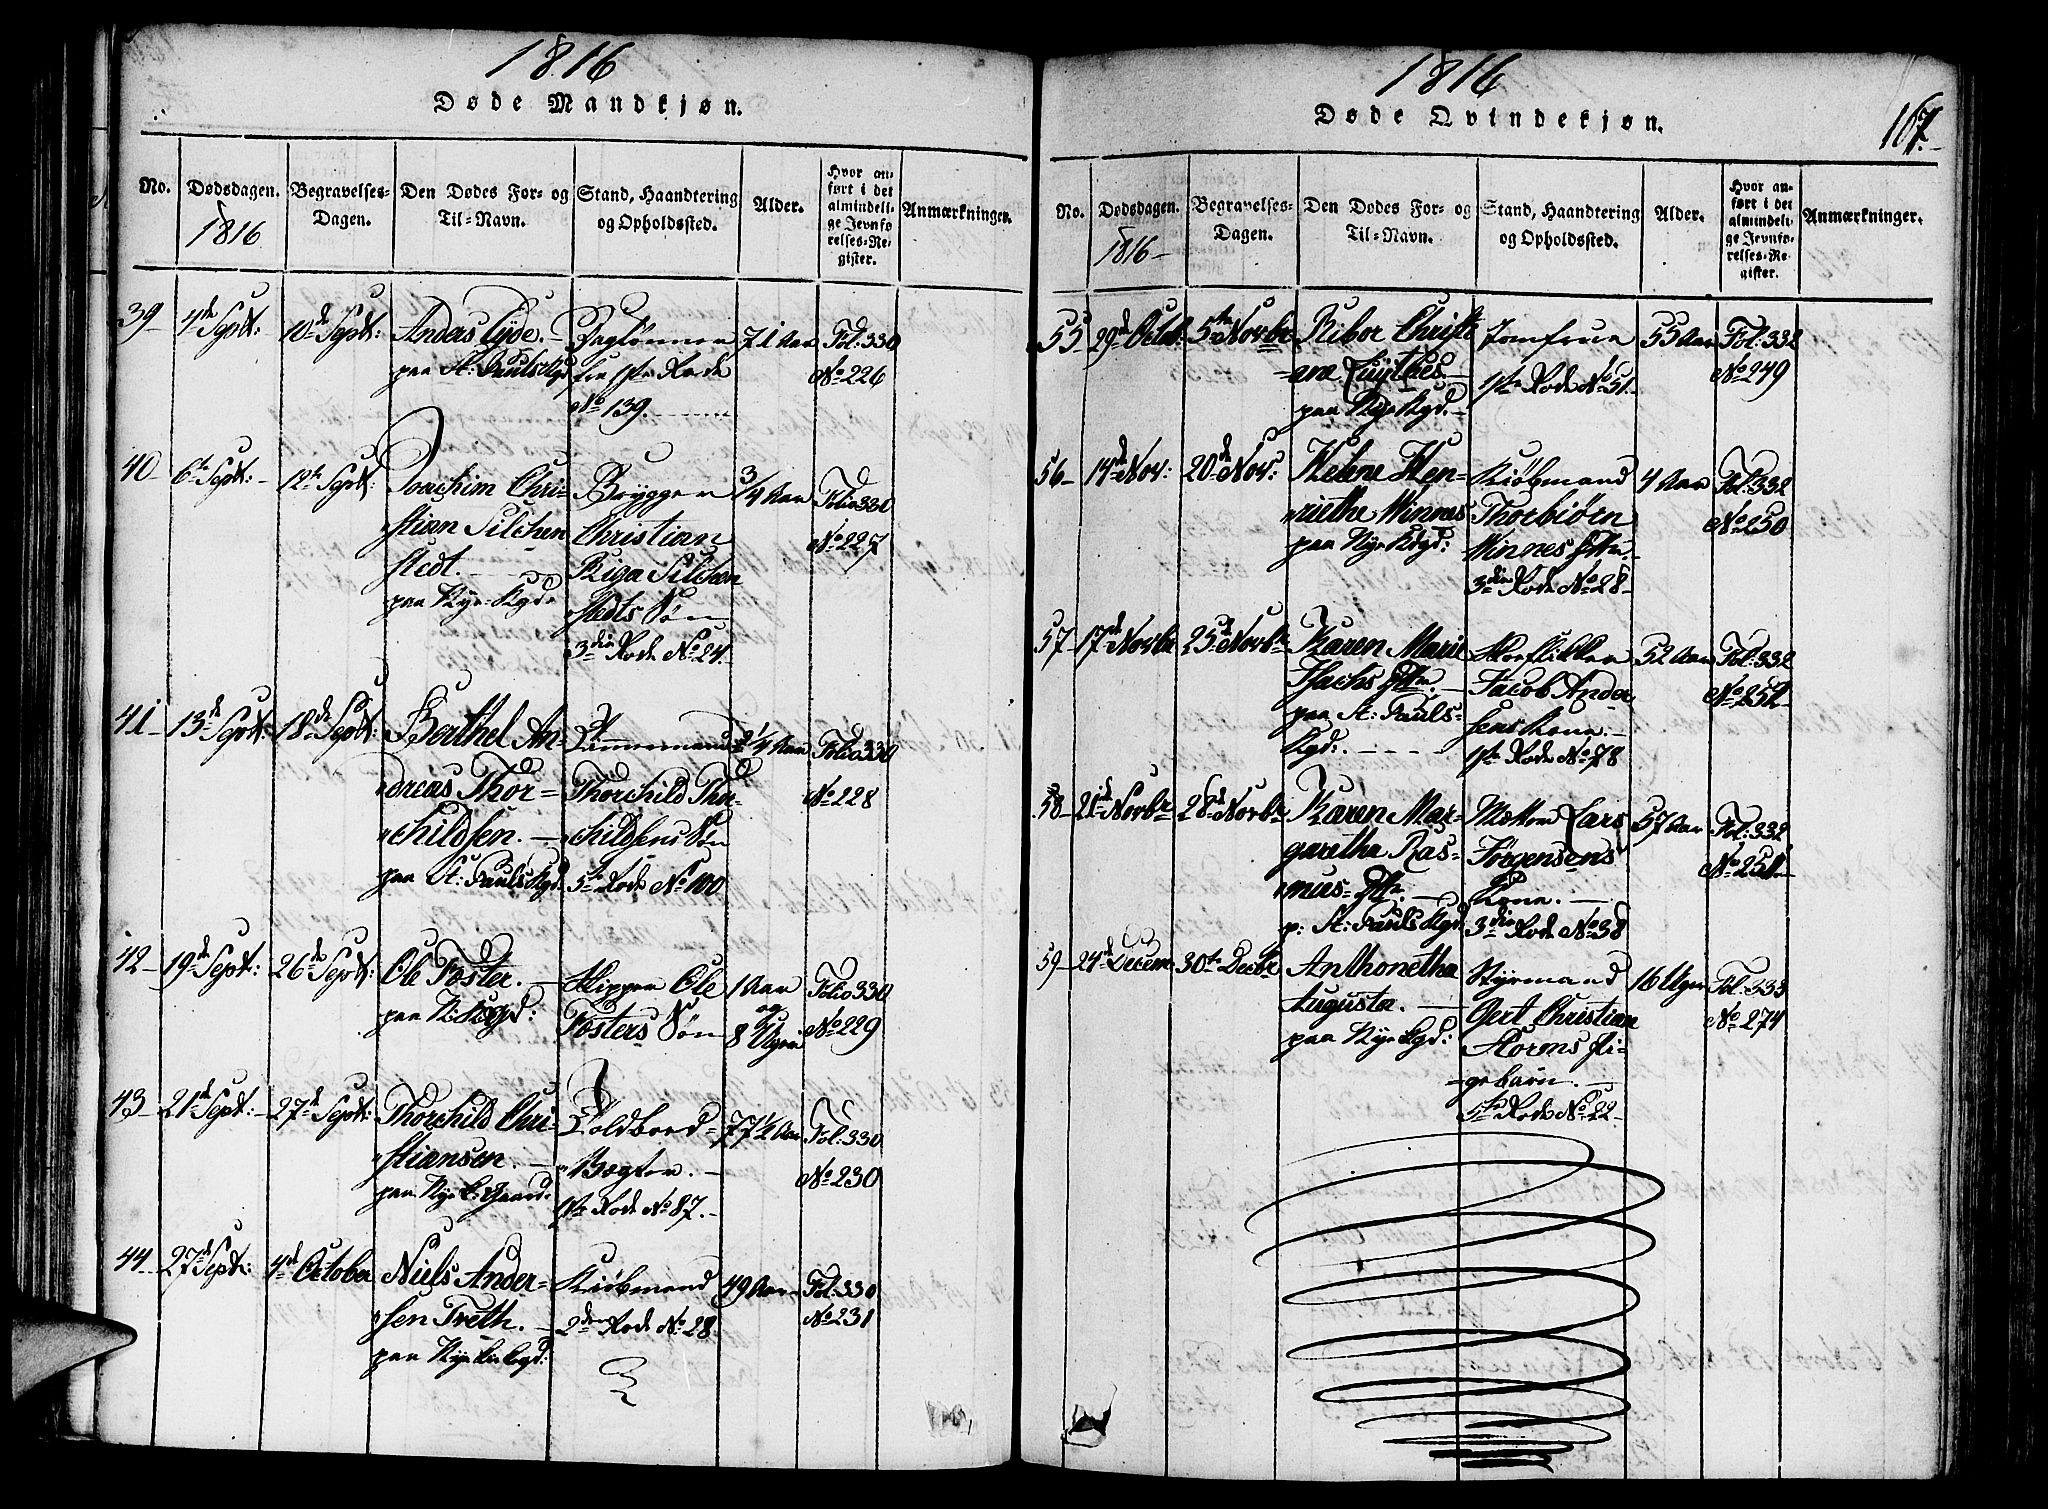 1816
Døde Mandkjøn.
No.
Dødsdagen.
1816
Begravelses-
Dagen.
Den Dødes For- og
Til-Navn.
Stand, Haandtering
og Opholdssted.
Alder.
Hvor an-
ført i det
almindeli-
ge Jevnfø-
relses-Re-
gister.
Anmærkninger.
39
4de Sept:
10de Sept:
Anders Gjøe.
paa St: Pauls Kgd
Dagløнner
fra 1ste Rode
No 139.
71 Aar
Fol: 330
No 226
40
6te Sept:
12te Sept:
Joachim Chri-
stian Silchen
stedt.
paa Nye Kgd.
Brygger
Christian
Riga Silchen
stedts Søn
3die Rode No 24.
3/4 Aar
Folio 330
No 227
41
13de Sept:
18de Sept:
Berthel An-
dreas Thor-
childsen.
paa St: Pauls Kgd.
Tømmermand
Thorchild Thor-
childsens Søn
5te Rode No 100
2 1/4 Aar
Folio 330
No 228
42
19de Sept:
26de Sept:
Ole Foster.
paa N: Kgd:
Skipper Ole
Fosters Søn
1 Aar
og
8 Uger
Folio 330
No 229
43
21de Sept:
27de Sept:
Thorchild Chri-
stiansen.
paa Nye K: Gaard.
Toldbod-
Vægter.
1ste Rode No 87.
77 1/2 Aar
Fol: 330
No 230
44
27de Sept:
4de October
Niels Ander-
sen Treth.
paa Nye Kirkegd:
Kiøbmand
2den Rode No 28.
49 Aar
Fol: 330
No 231
1816
Døde Qvindekjøn.
167.
No.
Dødsdagen.
1816
Begravelses-
Dagen.
Den Dødes For- og
Til-Navn.
Stand, Haandtering
og Opholdssted.
Alder.
Hvor an-
ført i det
almindeli-
ge Jevnfø-
relses-Re-
gister.
Anmærkninger.
55
29de Octob.
5te Novbr
Ribor Christi-
ane Luytkes.
paa Nye Kgd.
Jomfrue
1ste Rode No 51.
55 Aar
Fol: 332
No 249
56
14de Nov:
20de Nov:
Helene Hen-
riethe Winnes
paa Nye Kgd:
Kiøbmand
Thorbiørn
Winnes Dttr.
3die Rode No 28
4 Aar
Fol: 332
No 250
57
17de Novbr
25de Novbr
Karen Marie
Isachs Dttr.
paa St: Pauls-
Kgd:
Skoeflikker
Jacob Ander
sens Kone.
1ste Rode No 78
52 Aar
Fol: 332
No 252
58
21de Novbr
28de Novbr
Karen Mar-
garetha Ras-
mus-Dttr.
p: St: Pauls Kgd
Mattom Lars
Jørgensens
Kone.
3die Rode No 38
57 Aar
Fol: 332
No 251
59
24de Decem.
30te Decbr
Anthonetha
Augusta.
paa Nye Kgd:
Styrmand
Gert Christian
Storms Pi-
gebarn.
5te Rode No 22
16 Uger
Fol: 333
No 274